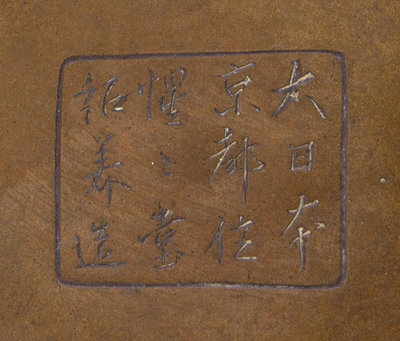 大日本
京都住
惺々堂
紹美造